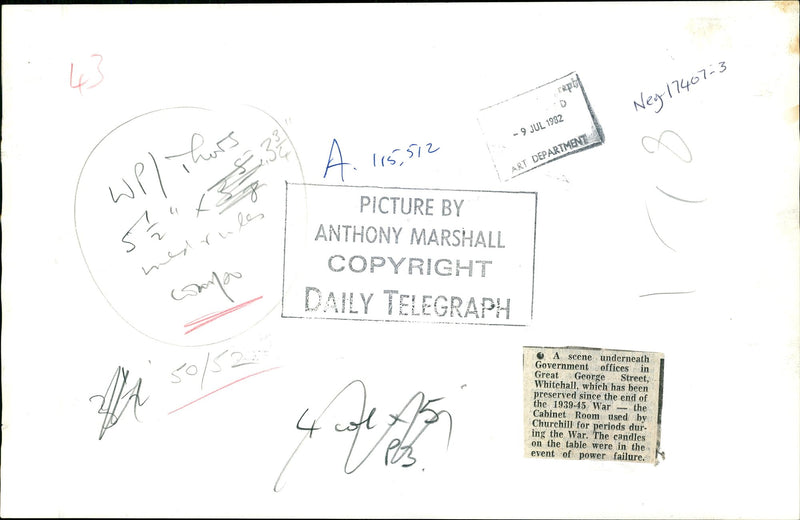 43
WP/Thurs
5½" x 3¾"
compo
A. 115,512
- 9 JUL 1982
ART DEPARTMENT
Neg 17407-3
PICTURE BY
ANTHONY MARSHALL
COPYRIGHT
DAILY TELEGRAPH
50/52
4 col x 5
P3.
A scene underneath
Government offices in
Great George Street,
Whitehall, which has been
preserved since the end of
the 1939-45 War — the
Cabinet Room used by
Churchill for periods dur-
ing the War. The candles
on the table were in the
event of power failure.